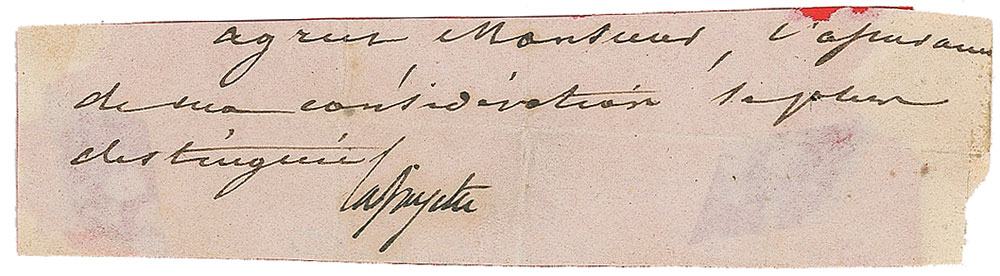 agréer Monsieur, l'assurance
de ma considération la plus
distinguée
Lafayette